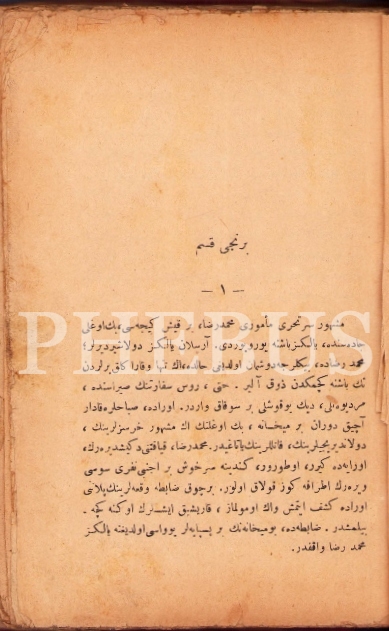 برنجی قسم
— ١ —
مشهور سرتحری مأموری محمدرضا، بر قیش کیجه‌سی، بك اوغلی
جاده‌سنده، یالکزباشنه یورویوردی. آرسلان یالکز دولاشیردیرلر؛
محمد رضاده، بیكلرجه دوشمانی اولدیغی حالده، اك تنها وقارا کلق یرلردن
تك باشنه کچمکدن ذوق آلیر. حتی، روس سفارتنك صیراسنده،
مردیوه‌نلی، دیك یوقوشلی بر سوقاق واردر. اوراده، صباحلره‌قادار
آچیق دوران بر میخانه، بك اوغلنك اك مشهور خرسزلرینك،
دولاندیریجیلرینك، قاتللرینك یاتاغیدر. محمدرضا، قیافتی دکیشدیره‌رك،
اورایه‌ده کیرر، اوطورور، کندینه سرخوش بر اجنبی نفری سوسی
ویره‌رك اطرافه کوز قولاق اولور. برچوق ضابطه وقعه‌لرینك پلانی
اوراده کشف ایتمش واك اومولماز، قاریشیق ایشلرك اوکنه کچه -
بیلمشدر. ضابطه‌ده، بومیخانه‌نك بر پسپایه‌لر یوواسی اولدیغنه یالکز
محمد رضا واقفدر.
PHEBUS